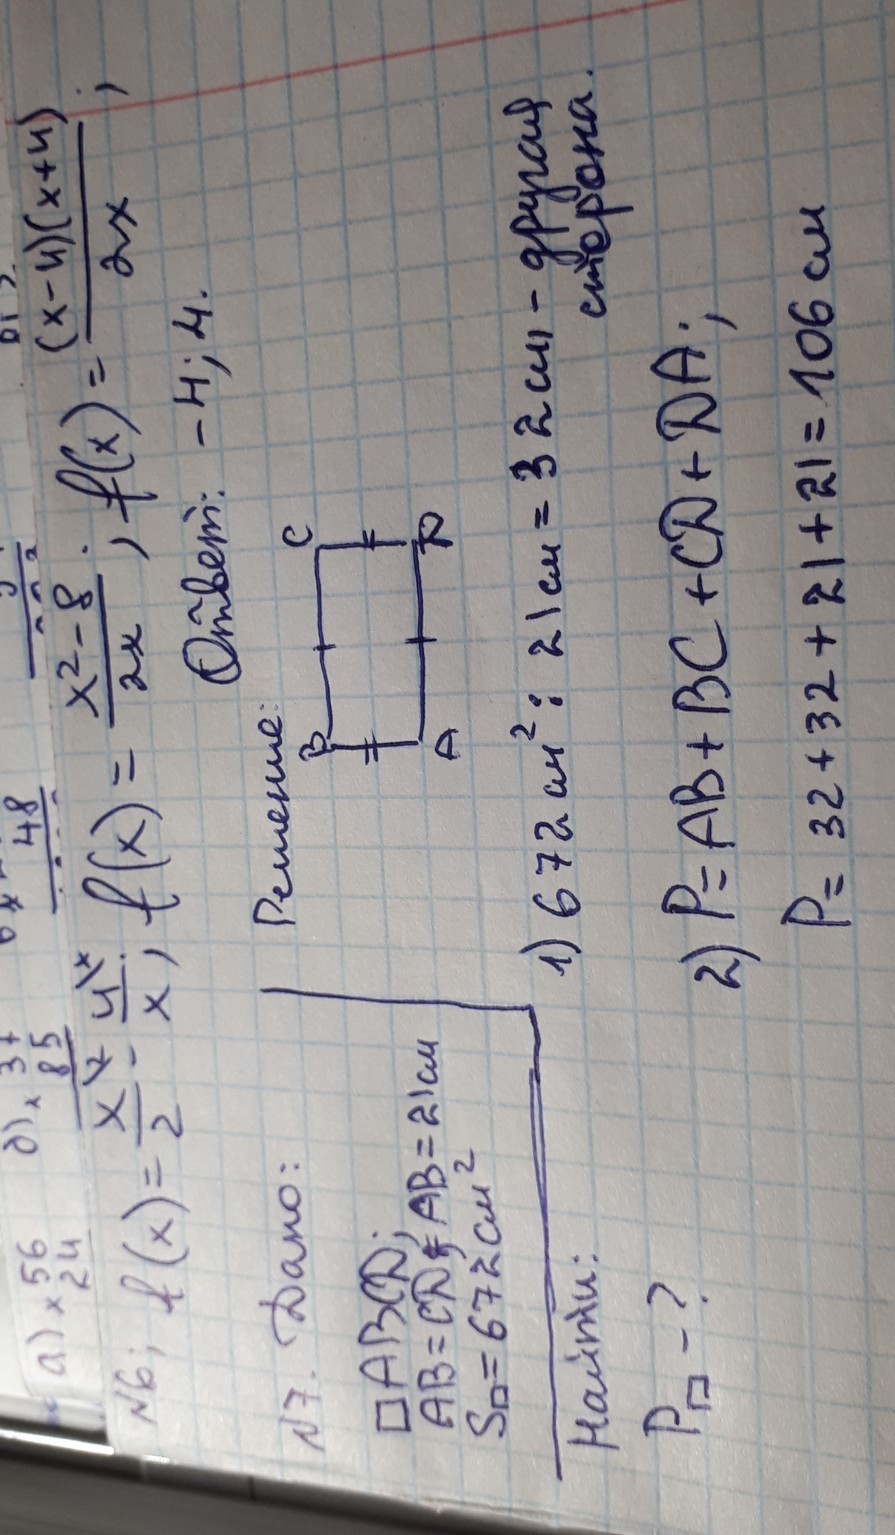 а) × 56
24
× 37
85
48
№6; f(x) = x\x/2 - 4\x/x; f(x) = x²-8/2x; f(x) = (x-4)(x+4)/2x;
Ответ: -4; 4.
№7. Дано:
□ABCD;
AB=CD; AB=21см
S□=672см²
Найти:
P□-?
Решение:
B
C
A
D
1) 672 см² : 21 см = 32 см - другая
сторона.
2) P = AB + BC + CD + DA;
P = 32 + 32 + 21 + 21 = 106 см